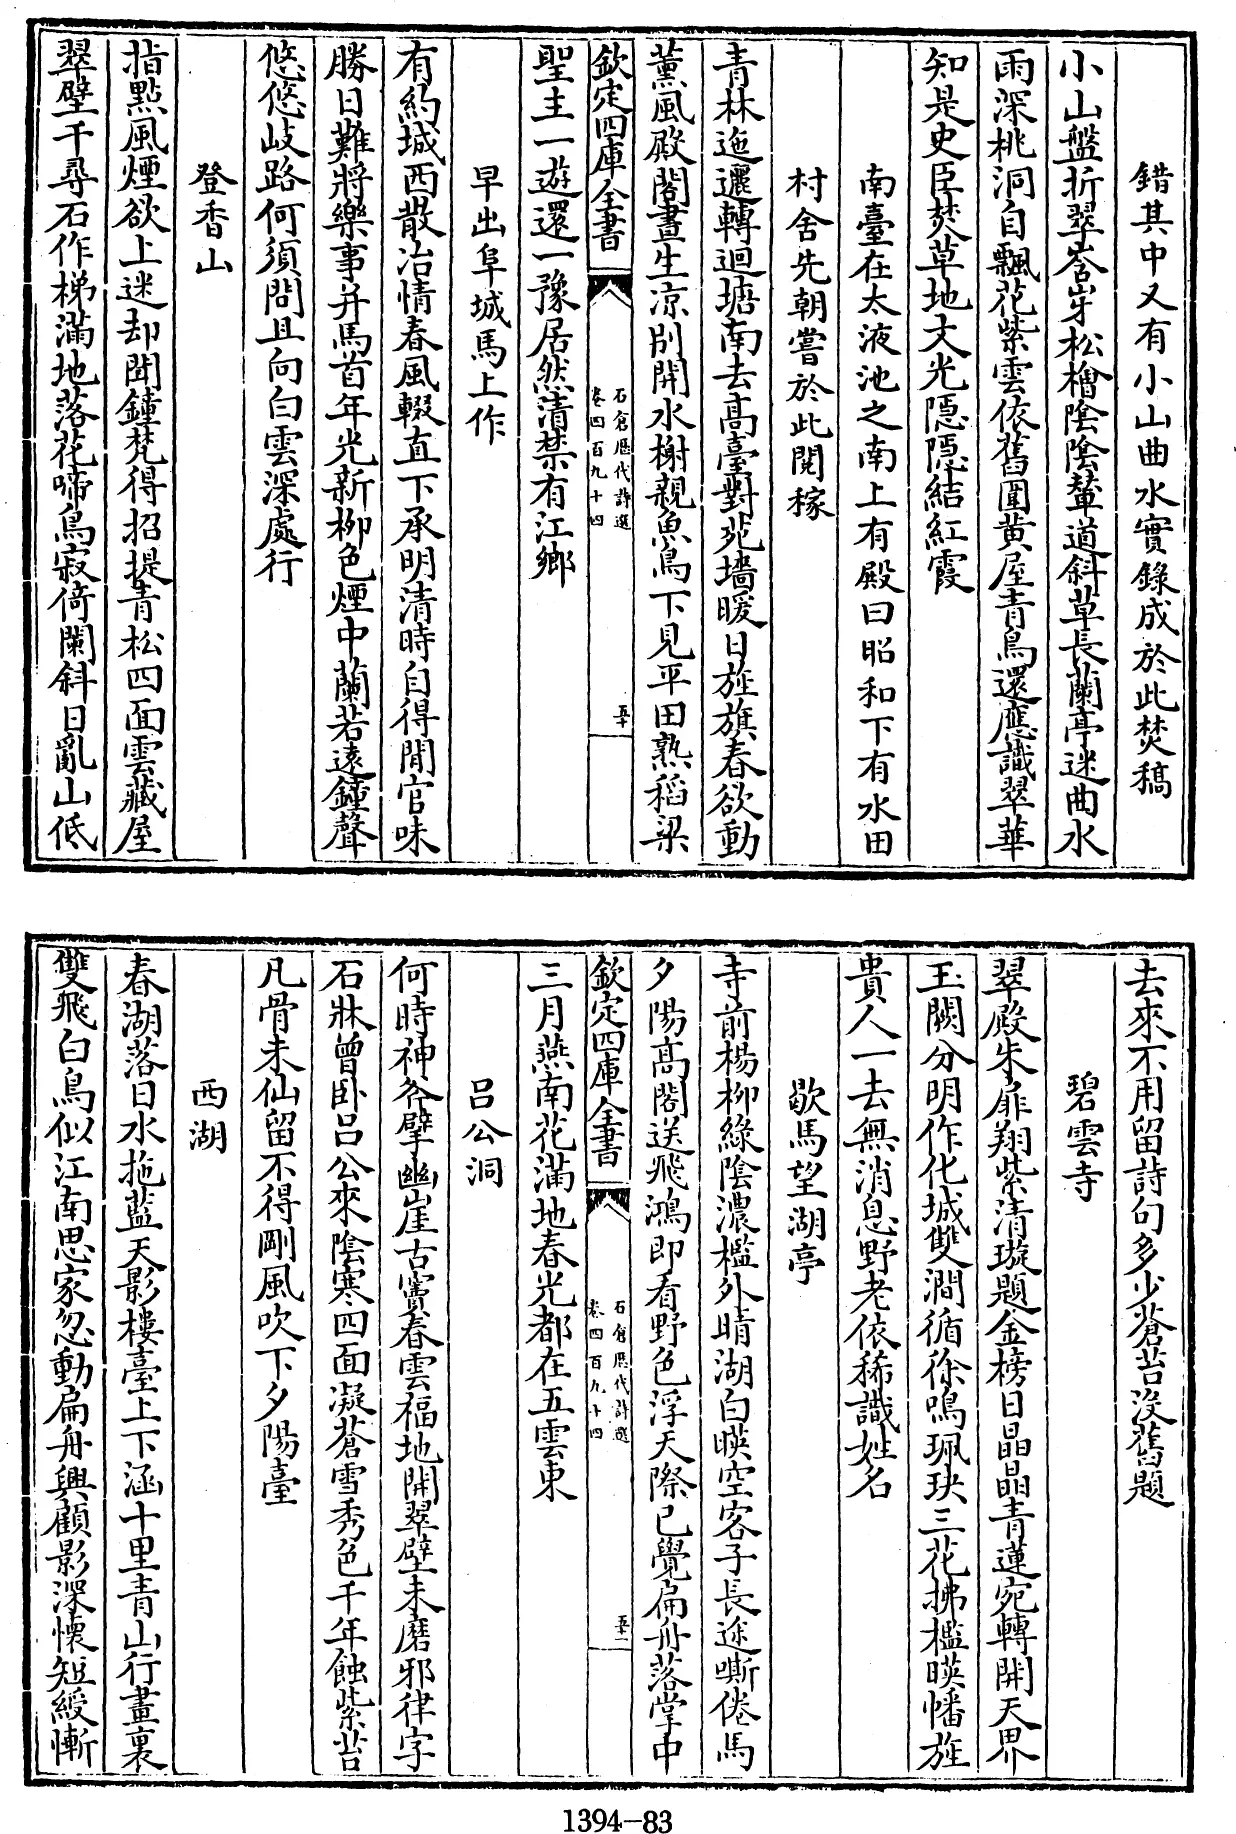 錯其中又有小山曲水實錄成於此焚稿
小山盤折翠㟏岈松檜陰陰輦道斜草長蘭亭迷曲水
雨深桃洞自飄花紫雲依舊圍黄屋青鳥還應識翠華
知是史臣焚草地文光隠隠結紅霞
南臺在太液池之南上有殿曰昭和下有水田
村舍先朝嘗於此閱稼
青林迤邐轉迴塘南去髙臺對苑墻暖日旌旗春欲動
薰風殿閣晝生凉别開水榭親魚鳥下見平田熟稻粱
欽定四庫全書
石倉歴代詩選
卷四百九十四
五十
聖主一遊還一豫居然清禁有江鄉
早出阜城馬上作
有約城西散冶情春風輟直下承明清時自得閒官味
勝日難將樂事并馬首年光新柳色煙中蘭若遠鐘聲
悠悠岐路何須問且向白雲深處行
登香山
指點風煙欲上迷却聞鐘梵得招提青松四面雲藏屋
翠壁千尋石作梯滿地落花啼鳥寂倚闌斜日亂山低
去來不用留詩句多少蒼苔没舊題
碧雲寺
翠殿朱扉翔紫清璇題金榜日晶晶青蓮宛轉開天界
玉闕分明作化城雙澗循徐鳴珮玦三花拂檻暎幡旌
貴人一去無消息野老依稀識姓名
歇馬望湖亭
寺前楊柳緑陰濃檻外晴湖白暎空客子長途嘶倦馬
夕陽髙閣送飛鴻即看野色浮天際已覺扁舟落掌中
欽定四庫全書
石倉歴代詩選
卷四百九十四
五十一
三月燕南花滿地春光都在五雲東
吕公洞
何時神斧擘幽崖古竇春雲福地開翠壁未磨邪律字
石牀曾卧吕公來陰寒四面凝蒼雪秀色千年蝕紫苔
凡骨未仙留不得剛風吹下夕陽臺
西湖
春湖落日水拖藍天影樓臺上下涵十里青山行畫裏
雙飛白鳥似江南思家忽動扁舟興顧影深懷短綬慚
1394-83